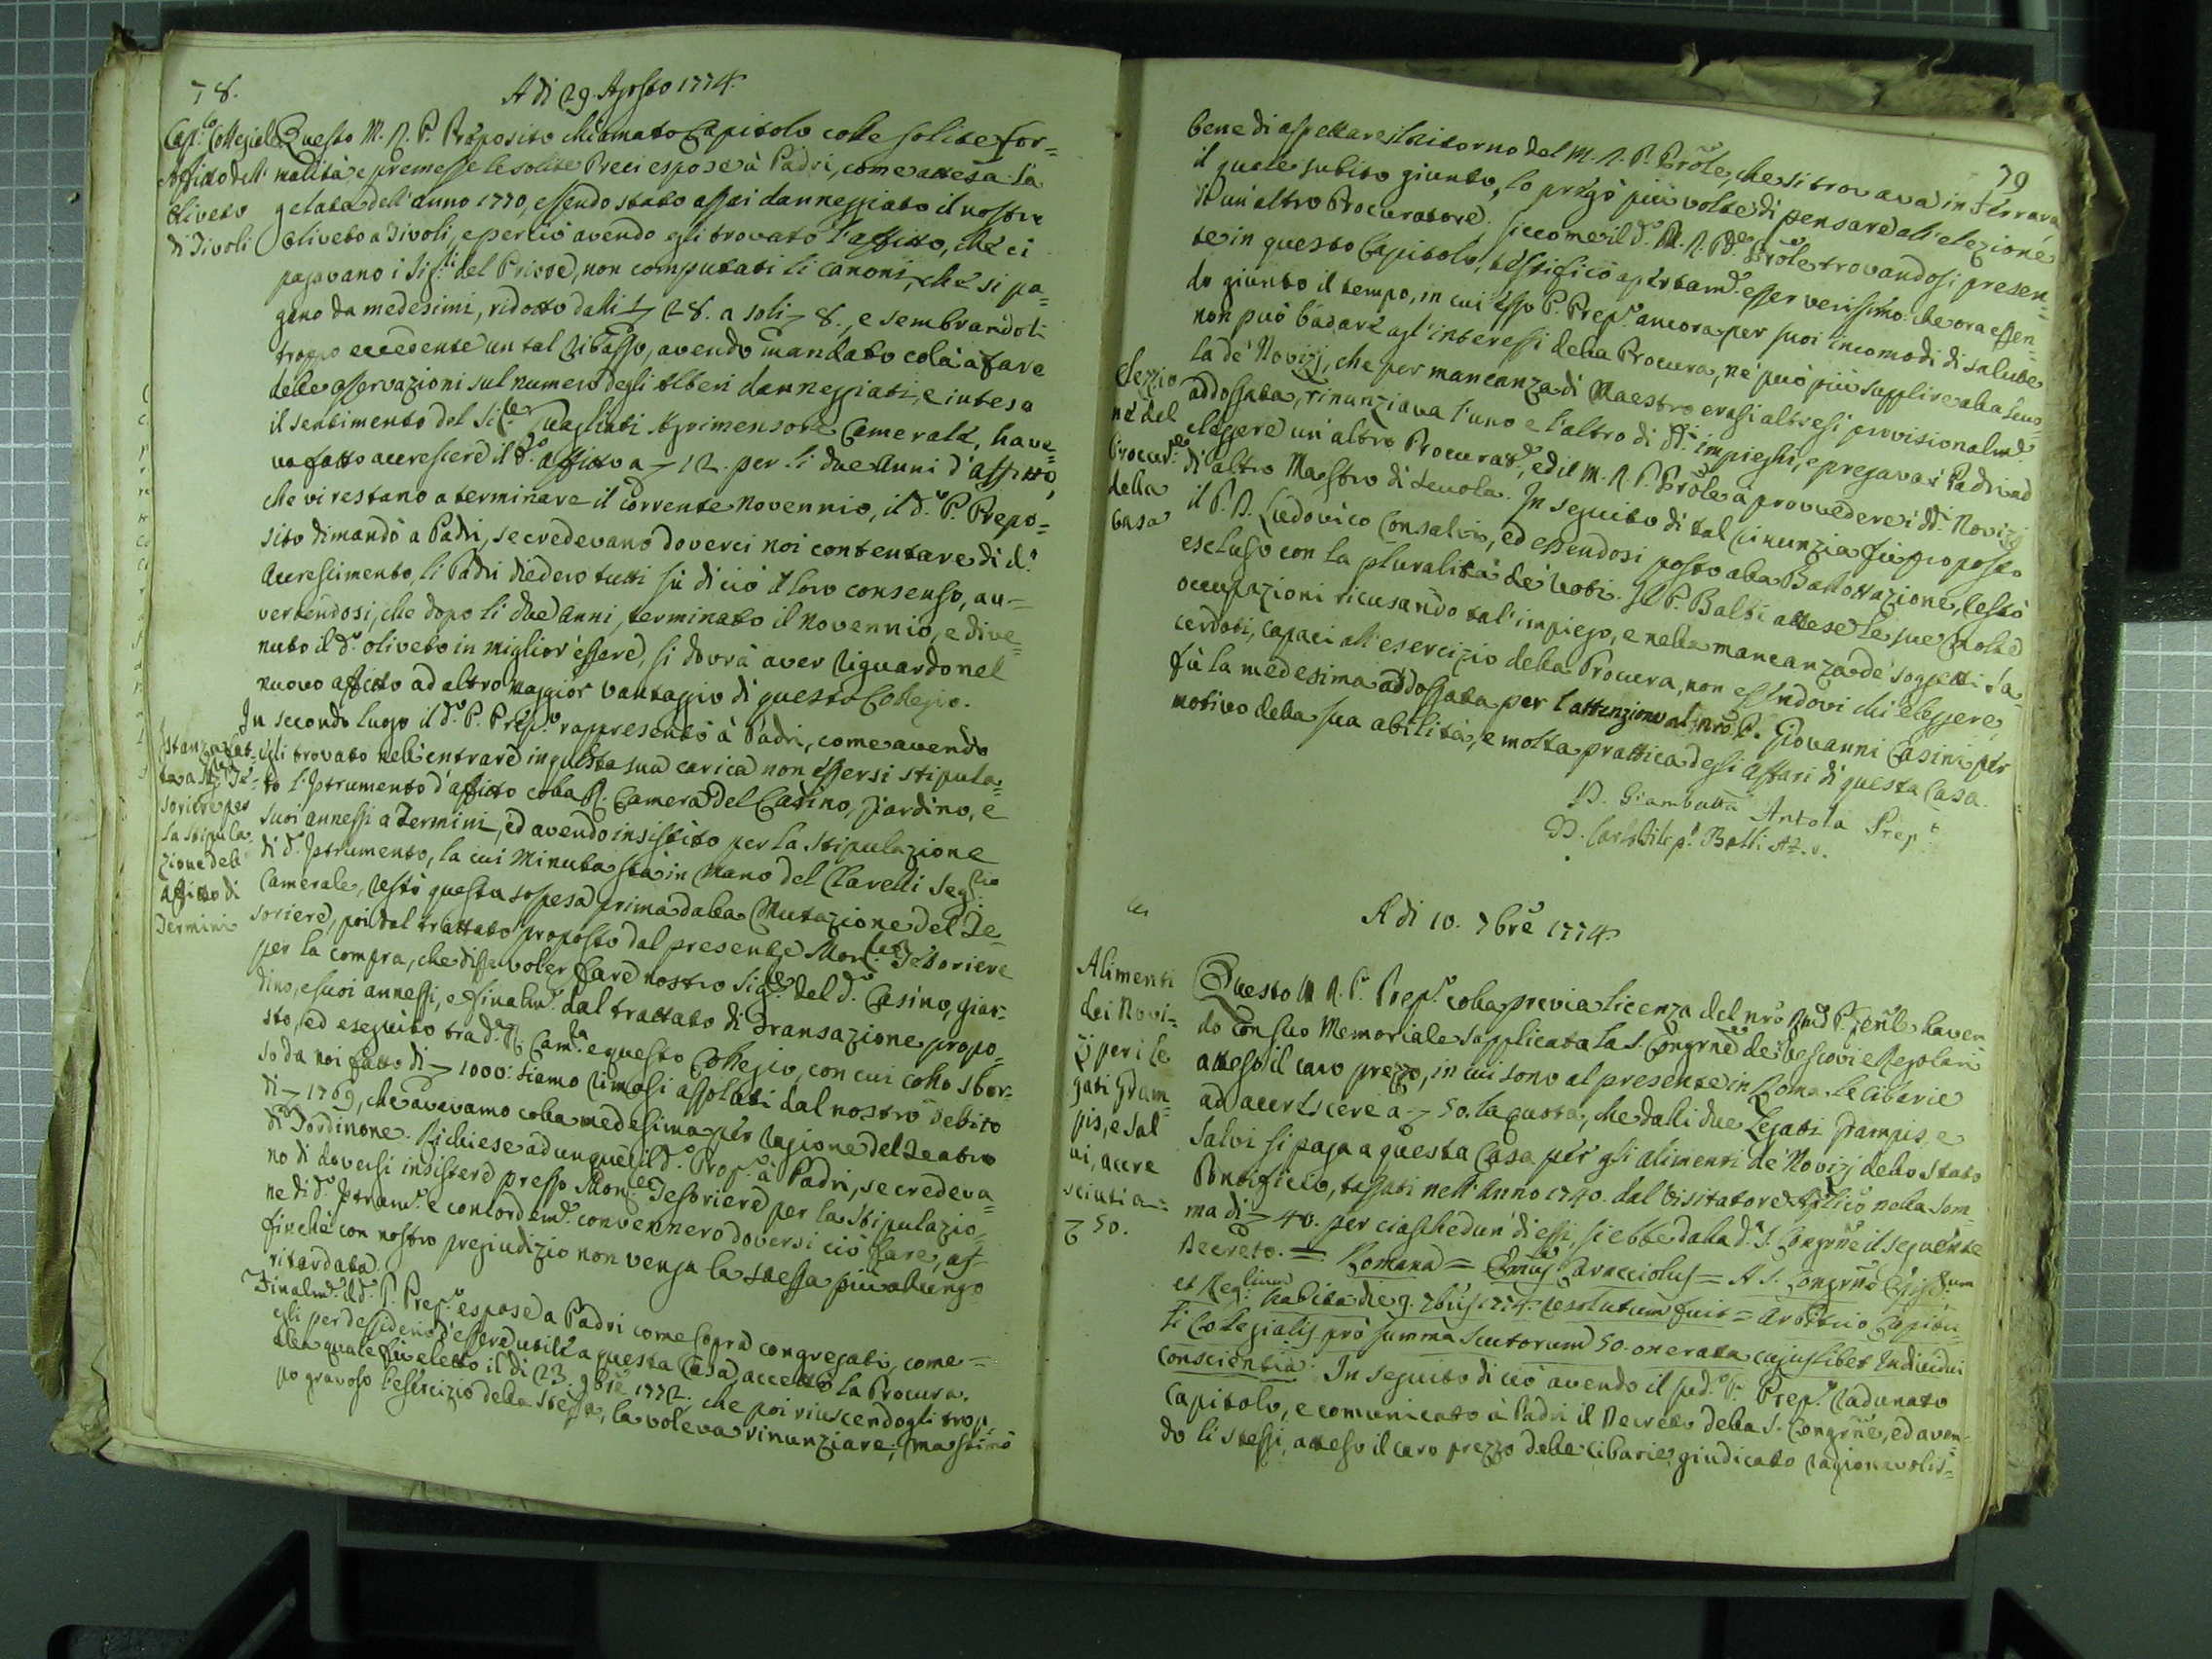 78.
A dì 29. Agosto 1774.
Cap.º Collegiale
Affitto dell'
Oliveto
di Tivoli
Questo M. R. P. Preposito chiamato Capitolo colle solite for=
malità, e premesse le solite Preci espose à Padri, come attesa la
gelata dell'anno 1770, essendo stato assai danneggiato il nostro
Oliveto a Tivoli, e perciò avendo egli trovato l'affitto, che ci
pagavano i Sig.ri del Priore, non computati li canoni, che si pa=
gano da medesimi, ridotto dalli 28. a soli 8., e sembrandoli
troppo eccedente un tal ribasso, avendo mandato colà a fare
delle osservazioni sul numero degli Alberi danneggiati, e inteso
il sentimento del Sig.re Quagliati Agrimensore Camerale, have=
va fatto accrescere il d.º affitto a 12. per li due Anni d'affitto,
che vi restano a terminare il corrente Novennio, il d.º P. Prepo=
sito dimandò a Padri, se credevano doverci noi contentare di d.º
accrescimento, li Padri diedero tutti sù di ciò il loro consenso, av=
vertendosi, che dopo li due anni, terminato il Novennio, e dive=
nuto il d.º oliveto in miglior essere, si dovrà aver riguardo nel
nuovo affitto ad altro maggior vantaggio di questo Collegio.
Istanza fat-
ta a Te-
soriere per
la stipula
zione dell'
affitto di
Termini
In secondo luogo il d.º P. Prep.º rappresentò à Padri, come avendo
egli trovato nell'entrare in questa sua carica non essersi stipula=
to l'Istrumento d'affitto colla R. Camera del Casino, Giardino, e
suoi annessi a Termini, ed avendo insistito per la stipulazione
di d.º Istrumento, la cui Minuta sta in mano del Clavelli Seg.rio
Camerale, restò questa sospesa prima dalla Mutazione del Te=
soriere, poi dal trattato proposto dal presente Mons.re Tesoriere
per la compra, che disse voler fare nostro Sig.re del d.º Casino, giar=
dino, e suoi annessi, e finalm.e dal trattato di Transazione propo=
sto, ed eseguito tra d.ª R. Cam.ª e questo Collegio, con cui collo sbor=
so da noi fatto di 1000. siamo rimasi assoluti dal nostro debito
di 1769, che avevamo colla medesima per ragione del Teatro
di Tordinone. Richiese adunque il d.º Prep.º à Padri, se credeva=
no di doversi insistere presso Mons.re Tesoriere per la stipulazio=
ne di d.º Istrum.º e concordem.e convennero doversi ciò fare, af=
finchè con nostro pregiudizio non venga la stessa più a lungo
ritardata.
Finalm.e il d.º P. Prep.º espose a Padri come sopra congregati, come
egli per desiderio d'essere utile a questa Casa, accettò la Procura,
alla quale fù eletto il dì 23. 9bre 1772., che poi riuscendogli trop=
po gravoso l'esercizio della stessa, la voleva rinunziare; ma stimò
79
bene di aspettare il ritorno del M. R. P. Prole, che si trovava in Ferrara
il quale subito giunto, lo pregò più volte di pensare all'elezione
di un altro Procuratore, siccome il d.º M. R. P.re Prole trovandosi presen=
te in questo Capitolo, testificò apertam.e esser verissimo: che ora essen=
do giunto il tempo, in cui esso P. Prep.º ancora per suoi incomodi di salute
non può badare agl'interessi della Procura, nè può più supplire alla Scuo=
la de' Novizj, che per mancanza di Maestro erasi altresì provisionalm.e
addossata, rinunziava l'uno e l'altro di dd.i impieghi, e pregava i Padri ad
eleggere un altro Procurat.e, ed il M. R. P. Prole a provvedere i dd.i Novizj
di altro Maestro di scuola. In seguito di tal rinunzia fu proposto
il P. D. Ludovico Consalvi, ed essendosi posto alla Ballottazione, restò
escluso con la pluralità de' voti. Il P. Balbi attese le sue molte
occupazioni ricusando tal'impiego, e nella mancanza de' soggetti Sa=
cerdoti, capaci all'esercizio della Procura, non essendovi chi eleggere,
fù la medesima addossata per l'attenzione al nrõ P. Giovanni Casini per
motivo della sua abilità, e molta prattica degli affari di questa Casa.
Elezzio
ne del
Procur.re
della
Casa
D. Giambatta Antola Prep.to
D. Carl Balbi
A dì 10. 7bre 1774.
Alimenti
dei Novi=
zj per i le
gati Gram=
pis, e Sal
vi, accre
sciuti a
50.
Questo M. R. P. Prep.º colla previa licenza del nrõ Rmõ P. Genle haven
do con suo Memoriale supplicata la S. Congrne de' Vescovi e Regolari
atteso il caro prezzo, in cui sono al presente in Roma le cibarie
ad accrescere a 50. la quota, che dalli due Legati Grampis, e
Salvi si paga a questa Casa per gli alimenti de' Novizj dello Stato
Pontificio, tassati nell'Anno 1740. dal Visitatore Aplico nella som=
ma di 40. per ciaschedun' di essi, si ebbe dalla d.ª S. Congrne il seguente
Decreto. = Romana = Emus Caracciolus = A S. Congrne Episc.um
et Reg.lium habita die 9. 7bris 1774. resolutum fuit = arbitrio Capitu=
li Collegialis prò summa scutorum 50. onerata cujuslibet Individui
conscientia. In seguito di ciò avendo il sud.º P. Prep.º radunato
Capitolo, e comunicato à Padri il Decreto della S. Congrne, ed aven=
do li stessi, atteso il caro prezzo delle cibarie, giudicato ragionevolis=